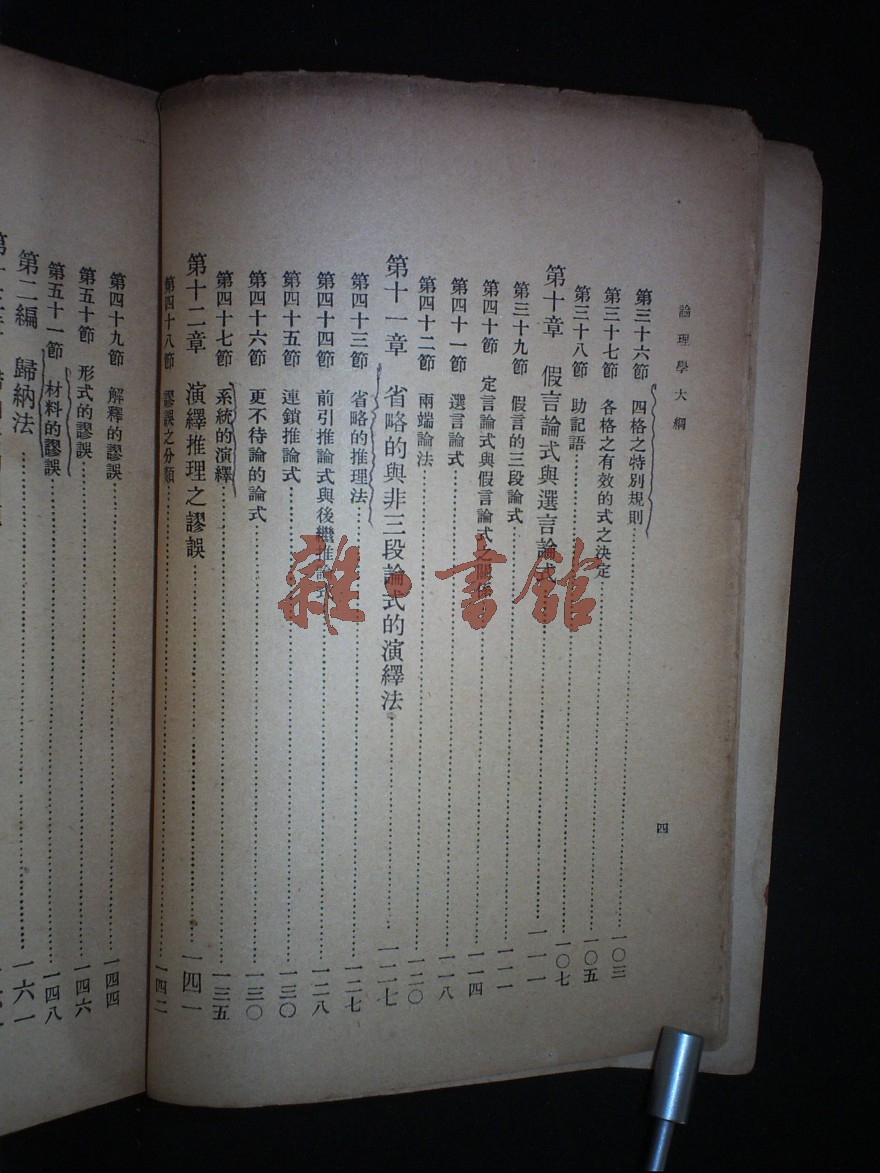 論理學大綱
四
第三十六節 四格之特別規則……一〇三
第三十七節 各格之有效的式之決定……一〇五
第三十八節 助記語……一〇七
第十章 假言論式與選言論式……一一一
第三十九節 假言的三段論式……一一一
第四十節 定言論式與假言論式之關係……一一四
第四十一節 選言論式……一一八
第四十二節 兩端論法……一二〇
第十一章 省略的與非三段論式的演繹法……一二七
第四十三節 省略的推理法……一二七
第四十四節 前引推論式與後繼推論式……一二八
第四十五節 連鎖推論式……一三〇
第四十六節 更不待論的論式……一三〇
第四十七節 系統的演繹……一三五
第十二章 演繹推理之謬誤……一四一
第四十八節 謬誤之分類……一四二
第四十九節 解釋的謬誤……一四四
第五十節 形式的謬誤……一四六
第五十一節 材料的謬誤……一四八
第二編 歸納法……一六一
雜·書館